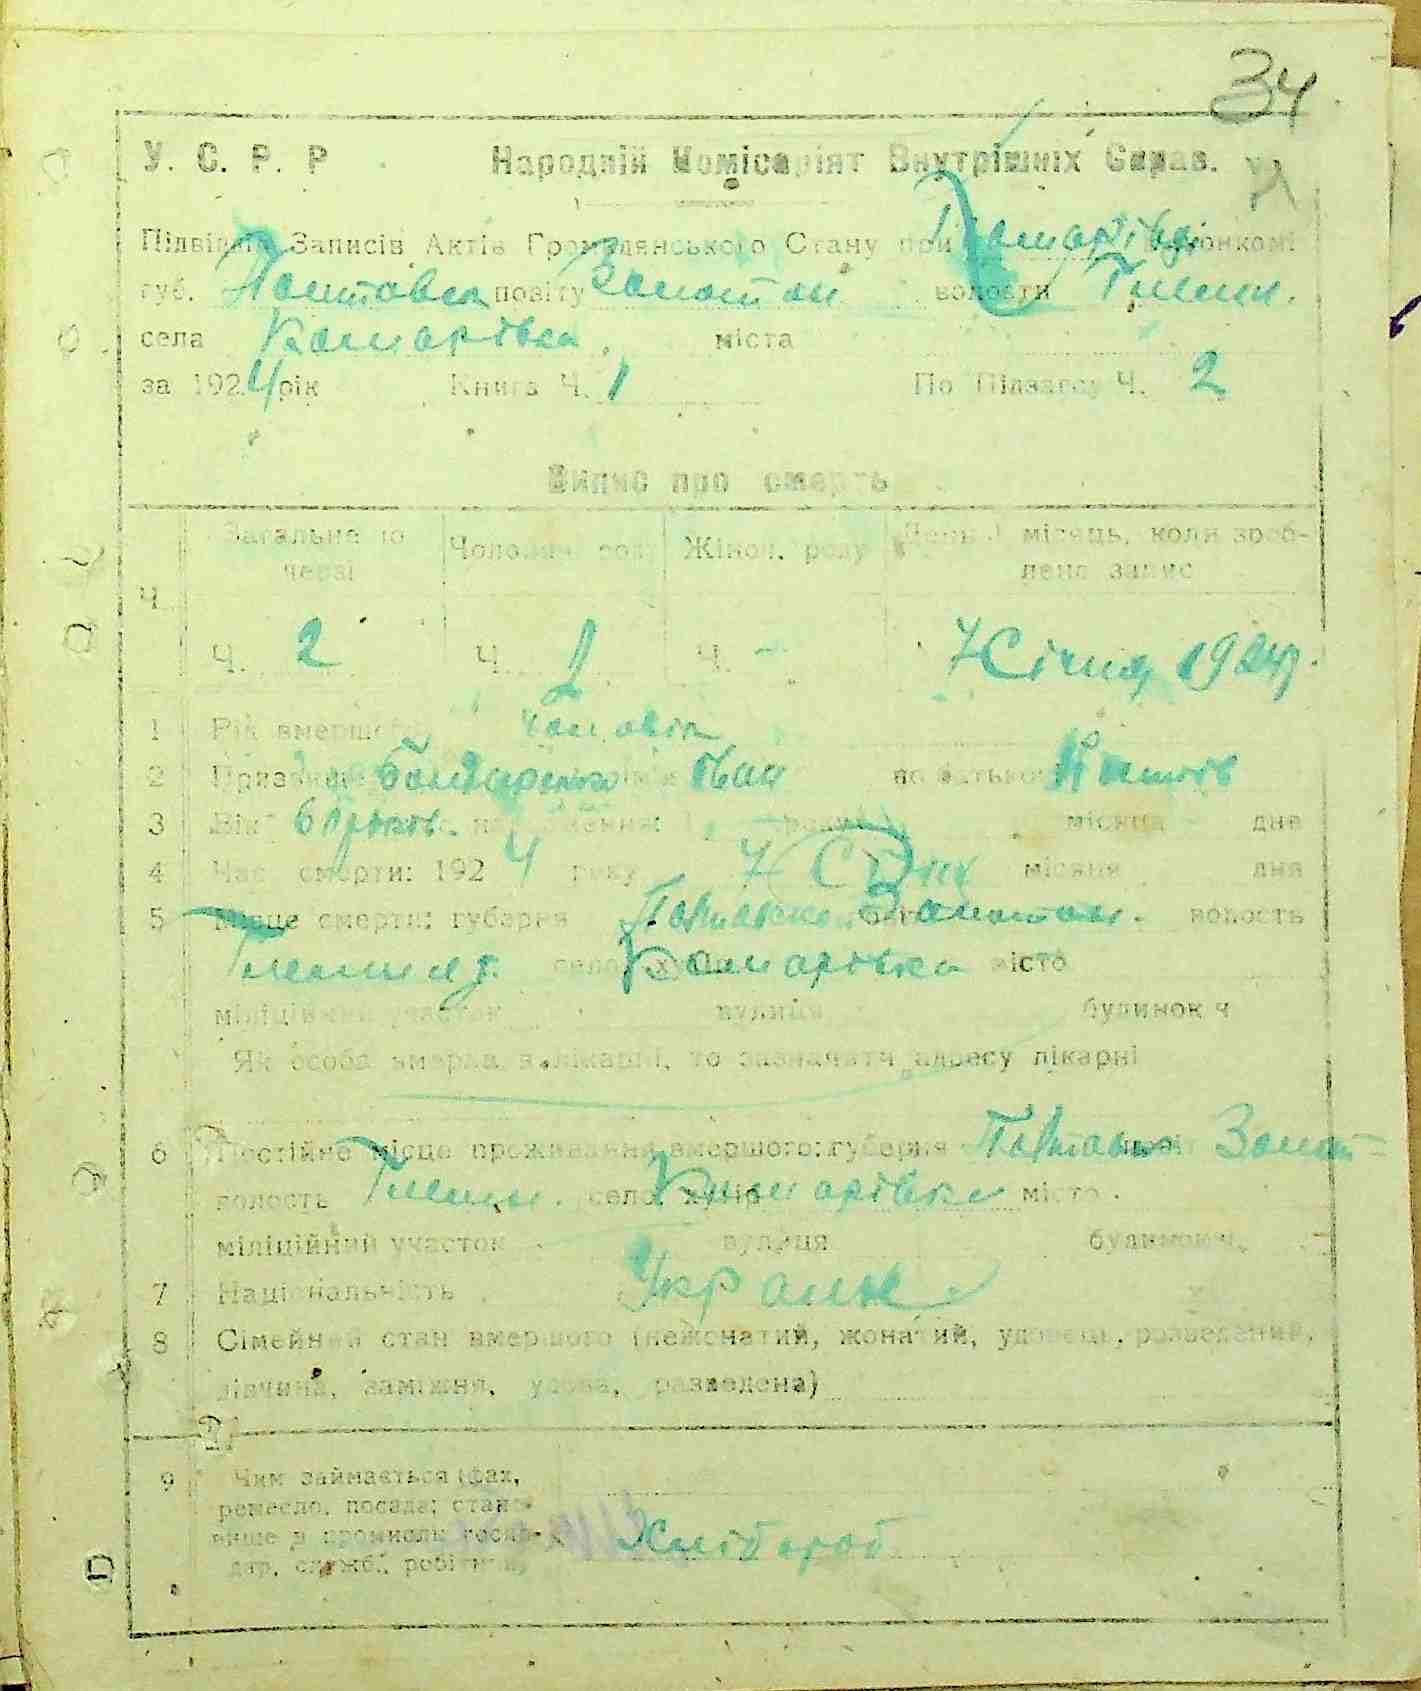 34
У. С. Р. Р Народній Комісаріят Внутрішніх Справ.
Підвідділ Записів Актів Громадянського Стану при Комарівс
губ. Полтавск повіту Золотон волости Гмели.
села Комарівка міста
за 1924 рік Книга Ч. 1 По Підзагсу Ч. 2
Випис про смерть
Ч. Загальна по черзі Чоловіч. роду Жіноч. роду місяць, коли зроблено запис
Ч. 2 Ч. 2 Ч. - 7 Січня 1924 р.
1 Рід вмершого Чоловік
2 Призвище Бондаренко Іван по батькові
3 Вік років. народження: року місяця дня
4 Час смерти: 1924 року 7 Січня місяця дня
5 Місце смерти: губерня Полтавск Золотон. волость
село, хутір Комарівка місто
міліційний участок вулиця будинок ч
Як особа вмерла в лікарні, то зазначити адресу лікарні
6 Постійне місце проживання вмершого: губерня Полтавс Золот-
волость Гмелш. село, хутір Комарівка місто.
міліційний участок вулиця будинок ч.
7 Національність Украін
8 Сімейний стан вмершого (нежонатий, жонатий, удовець, розведений,
дівчина, заміжня, удова, разведена)
9 Чим займається (фах,
ремесло, посада; стано-
вище в промислі, госпо-
дар, службі, робітник) Хлібороб